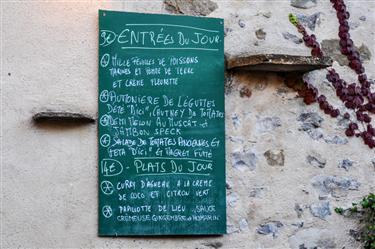 9€ ENTRÉES DU JOUR
MILLE FEUILLES DE POISSONS
TARINES ET POMME DE TERRE
ET CRÈME FLEURETTE
D'ÉTÉ "D'ICI", CHUTNEY DE TOMATES
DEMI MELON AU MUSCAT et
JAMBON SPECK
SALADE DE TOMATES ANCIENNES ET
FETA "D'ICI" ET MAGRET FUMÉ
14€ - PLATS DU JOUR
CURRY D'AGNEAU A LA CRÈME
DE COCO ET CITRON VERT
PAPILLOTE DE LIEU, SAUCE
CRÉMEUSE GINGEMBRE ET ROMARIN